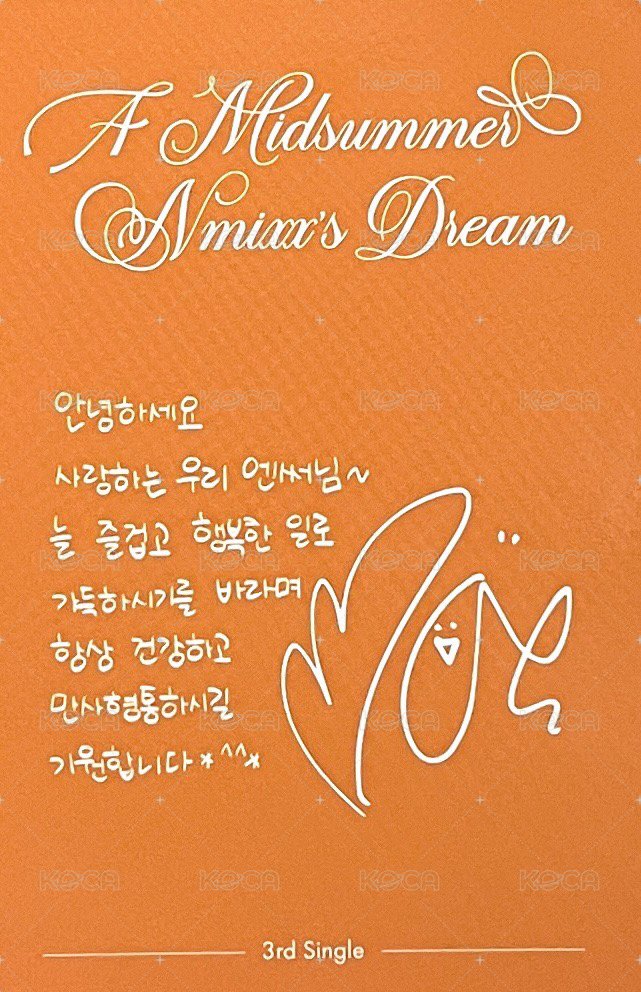 A Midsummer
Nmixx's Dream
안녕하세요
사랑하는 우리 엔써님~
늘 즐겁고 행복한 일로
가득하시기를 바라며
항상 건강하고
만사형통하시길
기원합니다*^^*
3rd Single
KOCA